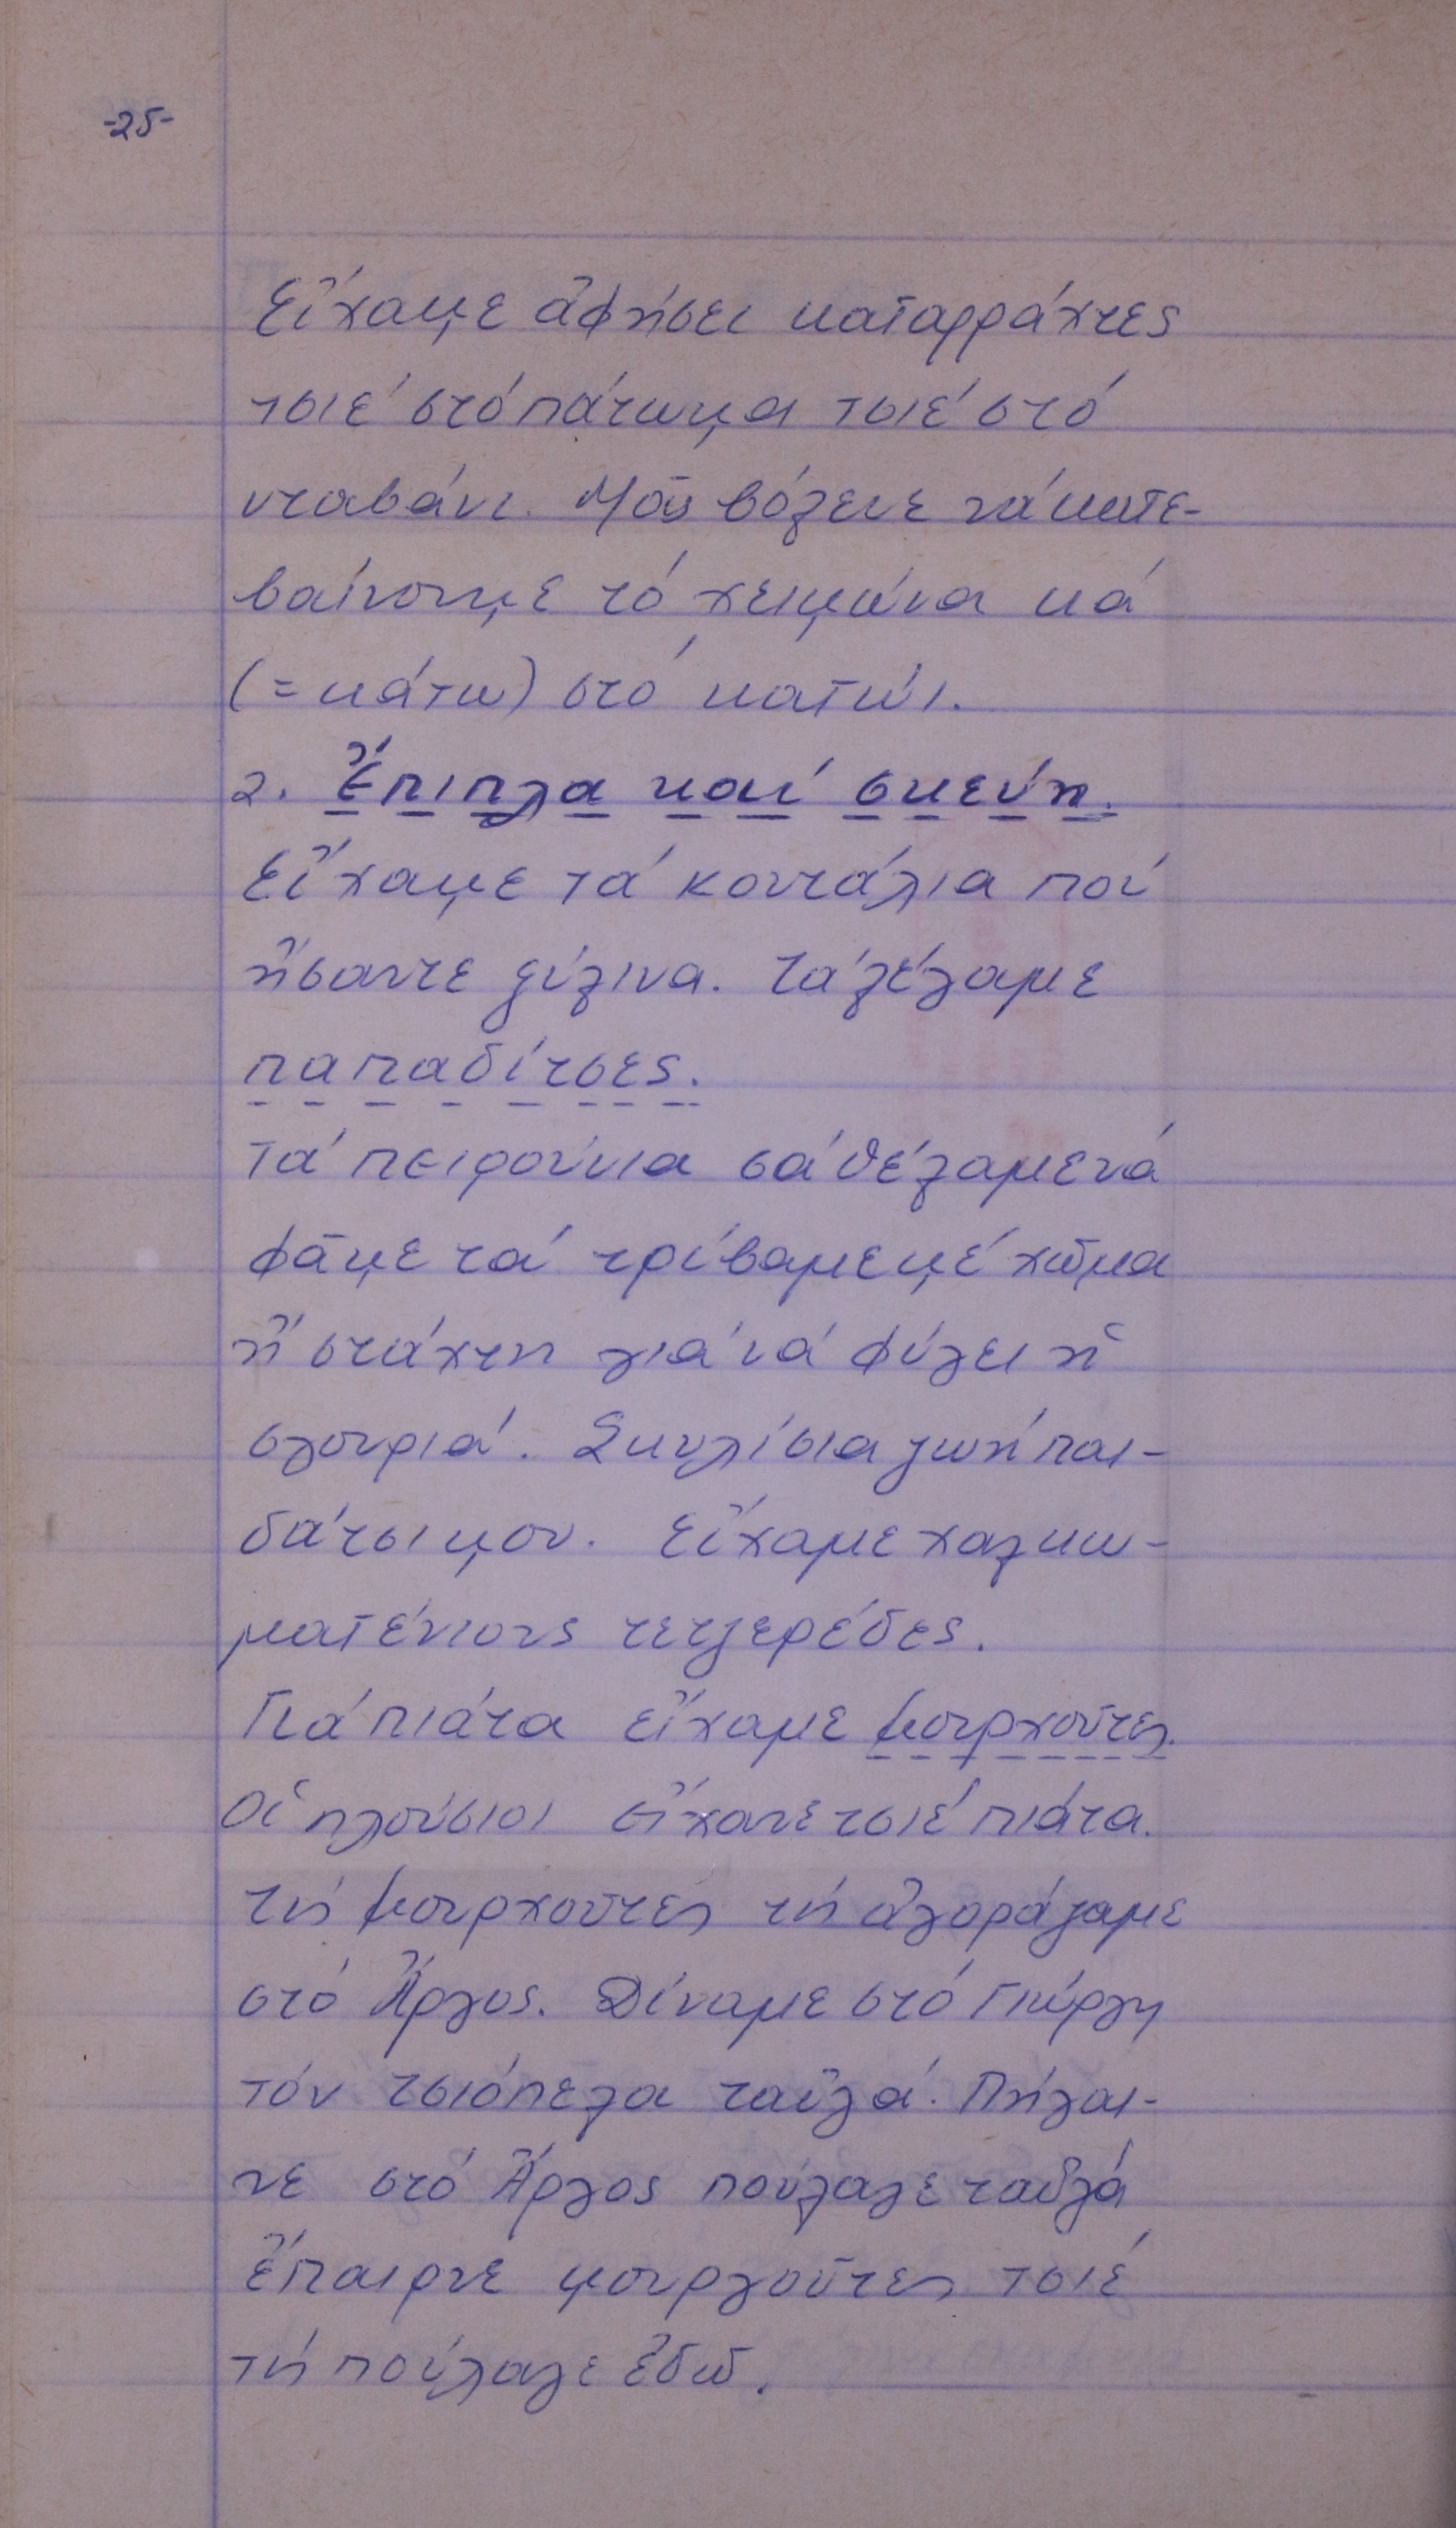 -25-
Εἴχαμε ἀφήσει καταρράχτες
τσιέ στό πάτωμα τσιέ στό
νταβάνι. Μᾶς βόλειε νά κατε-
βαίνουμε τό χειμώνα κά
(=κάτω) στό κατώι.
2. Ἔπιπλα καί σκεύη.
Εἴχαμε τά κουτάλια πού
ἤσαντε ξύλινα. Τά λέγαμε
παπαδίτσες.
Τά πειρούνια σά θέλαμε νά
φᾶμε τά τρίβαμε μέ χῶμα
ἤ στάχτη γιά νά φύγει ἡ
σγουριά. Σκυλίσια ζωή παι-
δάτσι μου. Εἴχαμε χαλκω-
ματένιους τετζερέδες.
Γιά πιάτα εἴχαμε μουρχοῦτες.
Οἱ πλούσιοι εἴχανε τσιέ πιάτα.
Τίς μουρχοῦτες τίς ἀγοράζαμε
στό Ἄργος. Δίναμε στό Γιώργη
τόν τσιόπελα ταὐγά. Πήγαι-
νε στό Ἄργος πούλαγε ταὐγά
ἔπαιρνε μουργοῦτες τσιέ
τίς πούλαγε ἐδῶ.